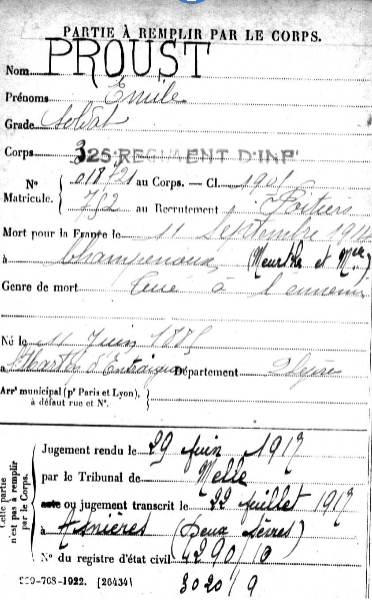 PARTIE À REMPLIR PAR LE CORPS.
Nom PROUST
Prénoms Emile
Grade Soldat
Corps 325 REGIMENT D'INF
N° 018721 au Corps. — Cl. 1905
Matricule. 792 au Recrutement Poitiers
Mort pour la France le 11 Septembre 1914
à Champenoux (Meurthe et Mlle)
Genre de mort Tué à l'ennemi
Né le 11 Juin 1885
à St Martin d'Entraigues Département 2 Sèvres
Arrt municipal (pr Paris et Lyon),
à défaut rue et N°.
Cette partie n'est pas à remplir par le Corps.
Jugement rendu le 29 Juin 1917
par le Tribunal de Melle
acte ou jugement transcrit le 22 juillet 1917
à Asnières (Deux Sèvres)
N° du registre d'état civil 4290/10
3020/9
[26434]